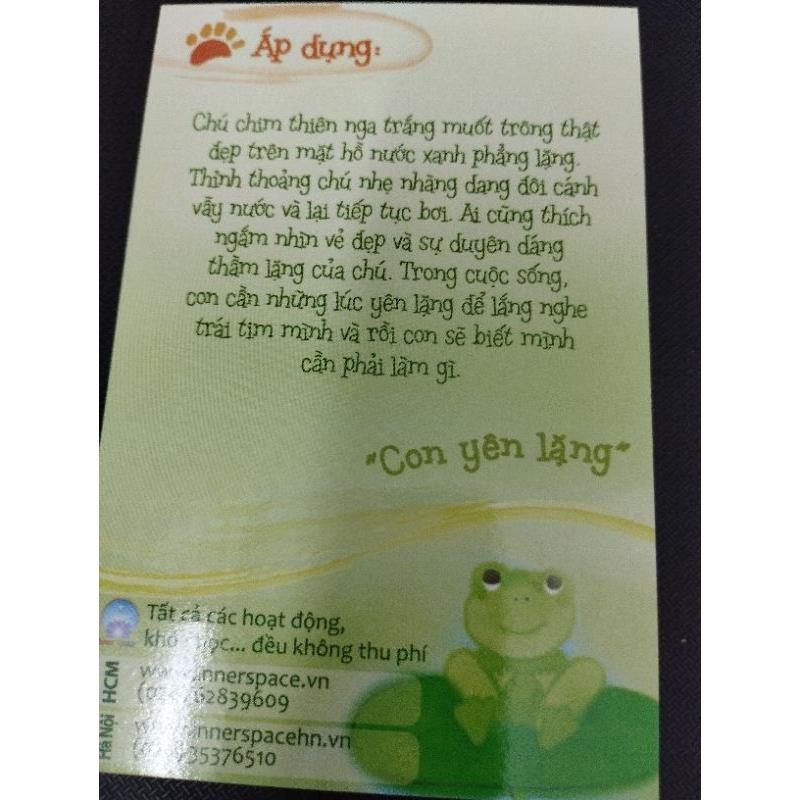 Áp dụng:
Chú chim thiên nga trắng muốt trông thật
đẹp trên mặt hồ nước xanh phẳng lặng.
Thỉnh thoảng chú nhẹ nhàng dang đôi cánh
vẫy nước và lại tiếp tục bơi. Ai cũng thích
ngắm nhìn vẻ đẹp và sự duyên dáng
thầm lặng của chú. Trong cuộc sống,
con cần những lúc yên lặng để lắng nghe
trái tim mình và rồi con sẽ biết mình
cần phải làm gì.
"Con yên lặng"
Tất cả các hoạt động,
đều không thu phí
HCM
62839609
Hà Nội
35376510